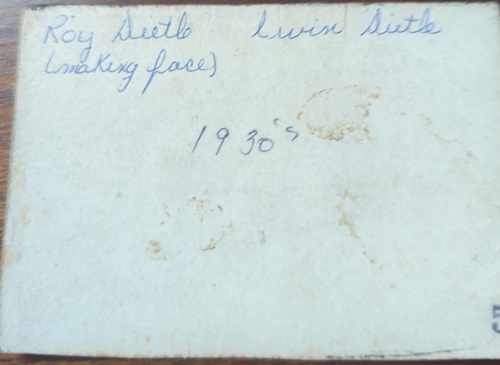 Roy Dietle Irvin Dietle
(making face)
1930's